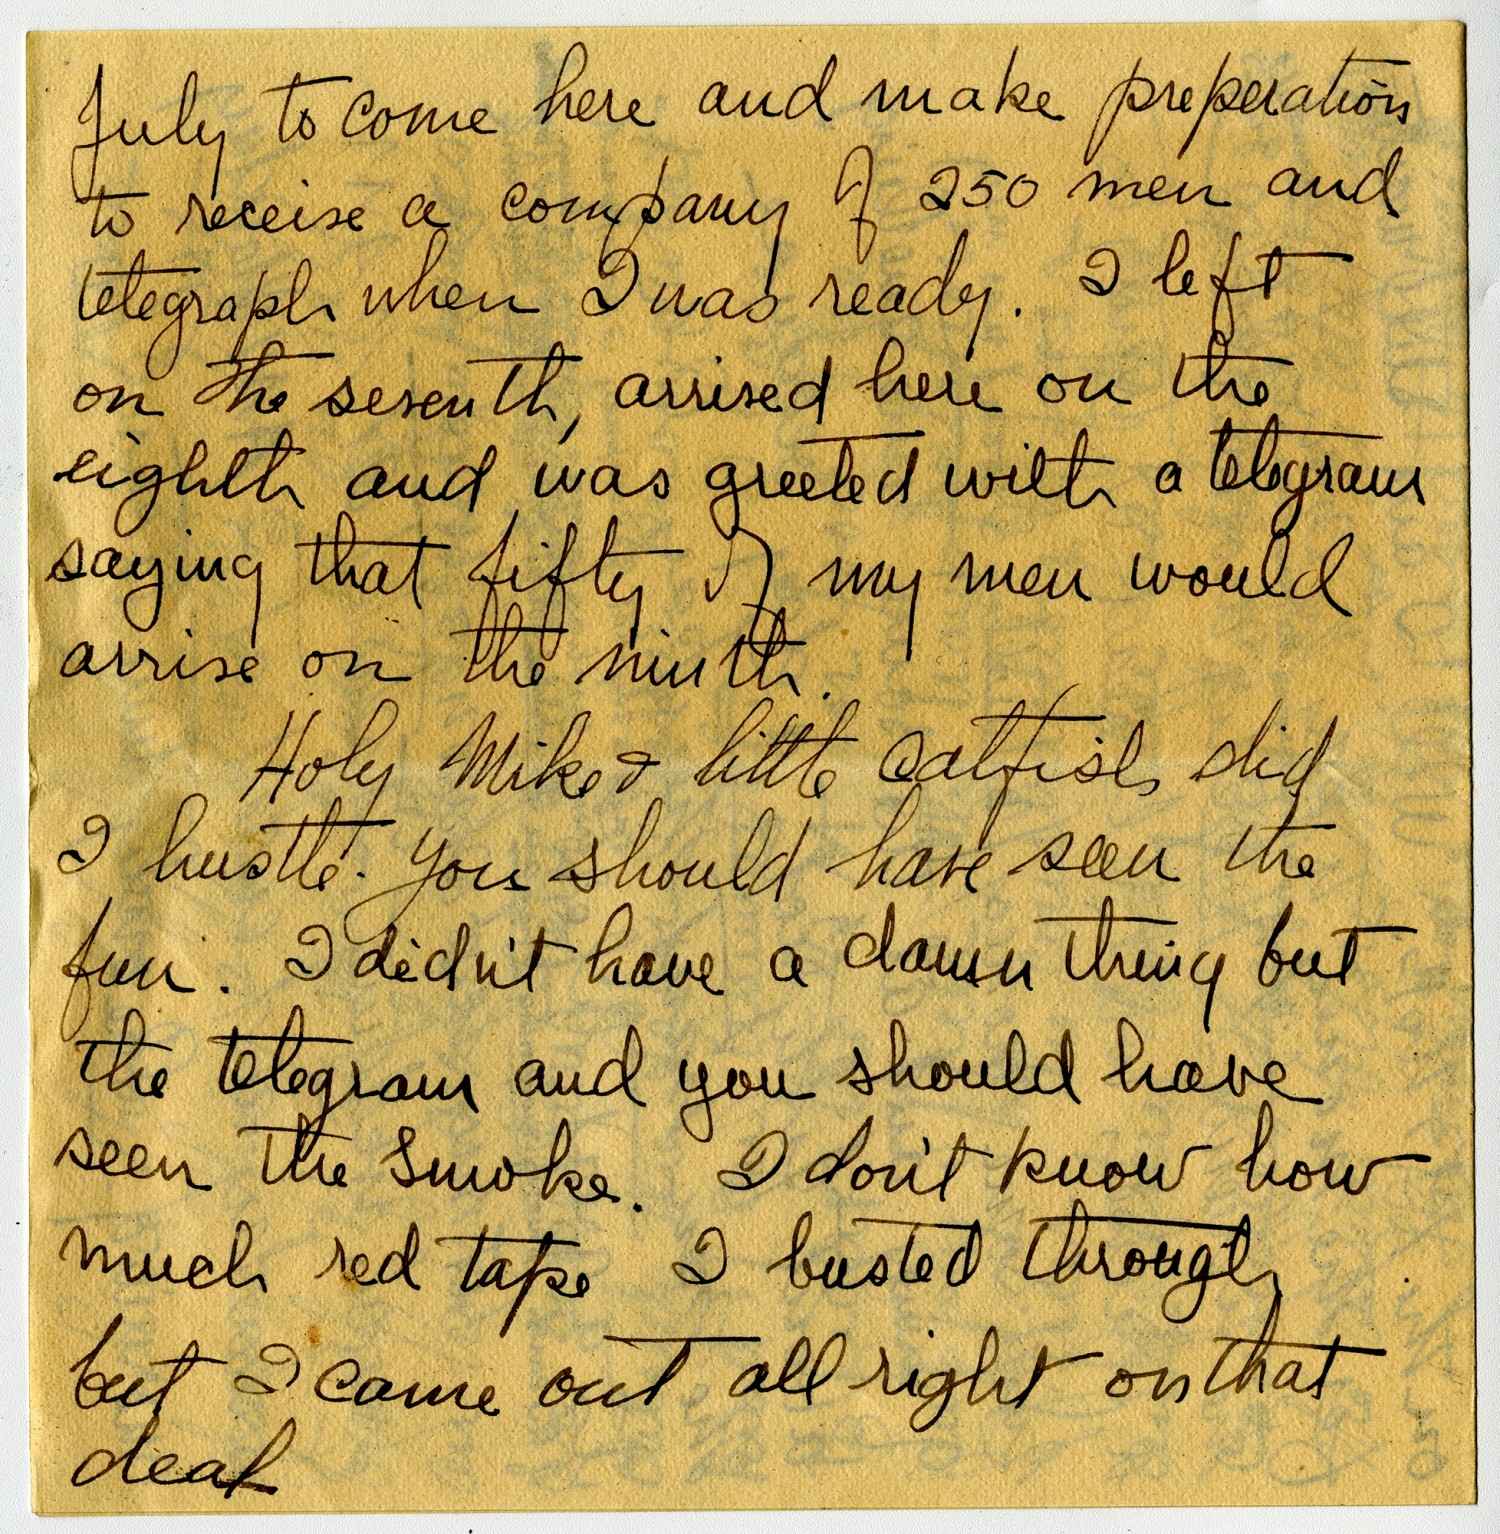 July to come here and make preperation
to receive a company of 250 men and
telegraph when I was ready. I left
on the seventh, arrived here on the
eighth and was greeted with a telegram
saying that fifty of my men would
arrive on the ninth.
Holy Mike & little catfish did
I hustle. You should have seen the
fun. I didn't have a damn thing but
the telegram and you should have
seen the smoke. I don't know how
much red tape I busted through
but I came out all right on that
deal